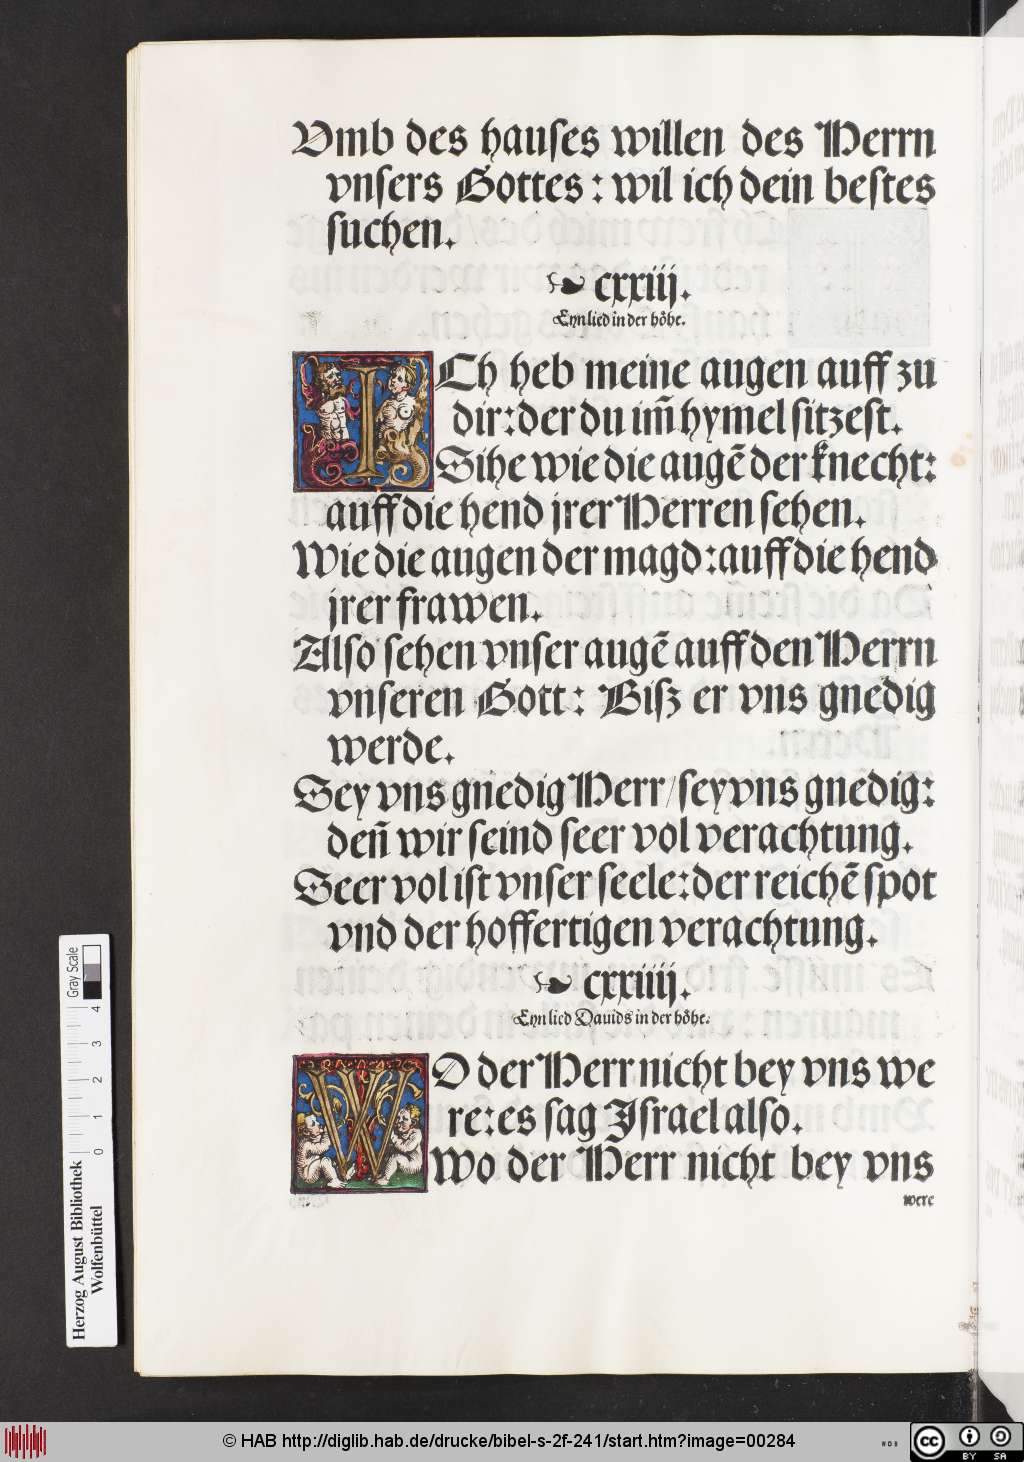 Vmb des hauses willen des Herrn
vnsers Gottes: wil ich dein bestes
suchen.
cxxiij.
Eyn lied in der höhe.
ICh heb meine augen auff zu
dir: der du im̄ hymel sitzest.
Sihe wie die augẽ der knecht:
auff die hend jrer Herren sehen.
Wie die augen der magd: auff die hend
jrer frawen.
Also sehen vnser augẽ auff den Herrn
vnseren Gott: Biß er vns gnedig
werde.
Sey vns gnedig Herr / sey vns gnedig:
den̄ wir seind seer vol verachtung.
Seer vol ist vnser seele: der reichẽ spot
vnd der hoffertigen verachtung.
cxxiiij.
Eyn lied Dauids in der höhe.
WO der Herr nicht bey vns we
re: es sag Israel also.
Wo der Herr nicht bey vns
were
Gray Scale
0 1 2 3 4
Herzog August Bibliothek
Wolfenbüttel
© HAB http://diglib.hab.de/drucke/bibel-s-2f-241/start.htm?image=00284
WDB
cc BY SA